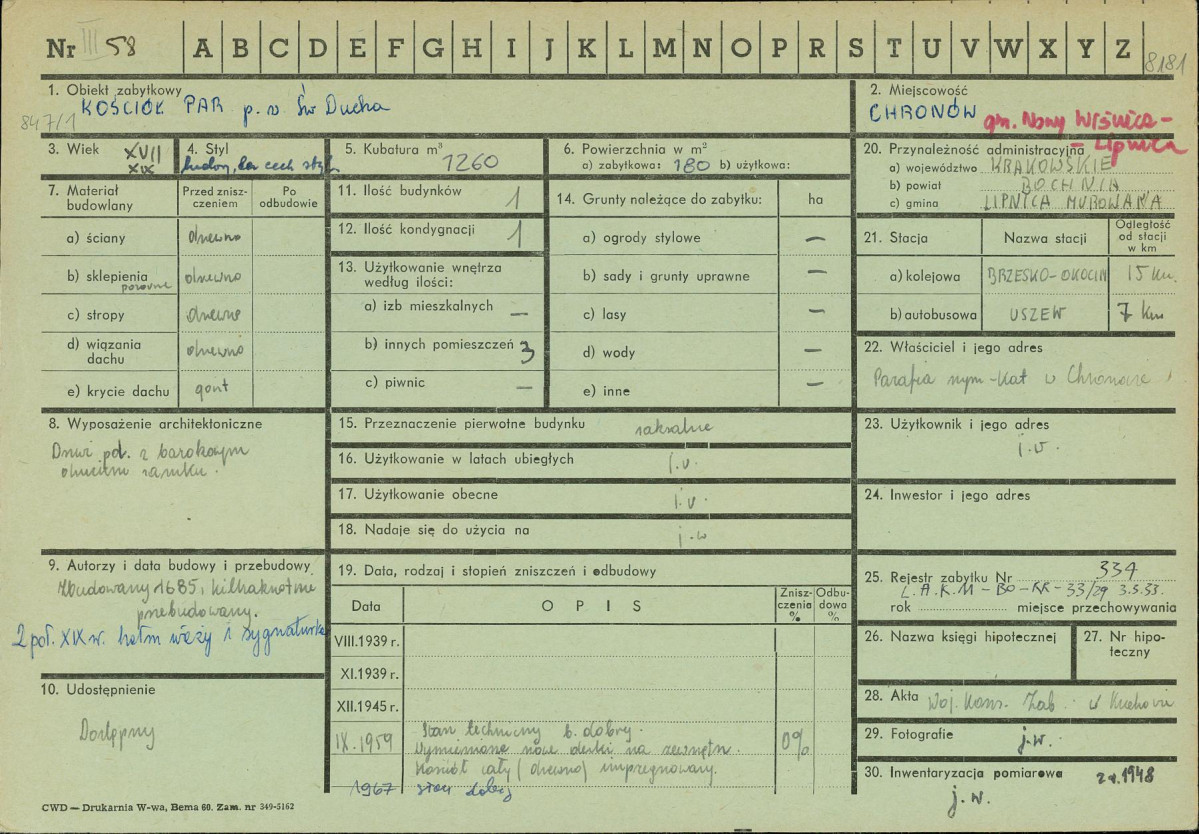 Nr III 58 A B C D E F G H I J K L M N O P R S T U V W X Y Z 8181
1. Obiekt zabytkowy
KOŚCIÓŁ PAR p. w Św Ducha
847/1
2. Miejscowość
CHRONÓW gm. Nowy Wiśnicz -
- Lipnica
3. Wiek XVII
XIX
4. Styl
bez cech styl.
5. Kubatura m³ 1260
6. Powierzchnia w m²
a) zabytkowa: 180 b) użytkowa:
20. Przynależność administracyjna
a) województwo KRAKOWSKIE
b) powiat BOCHNIA
c) gmina LIPNICA MUROWANA
7. Materiał budowlany
Przed zniszczeniem
Po odbudowie
a) ściany drewno
b) sklepienia drewno
pozorne
c) stropy drewno
d) wiązania dachu drewno
e) krycie dachu gont
11. Ilość budynków 1
12. Ilość kondygnacji 1
13. Użytkowanie wnętrza
według ilości:
a) izb mieszkalnych —
b) innych pomieszczeń 3
c) piwnic —
14. Grunty należące do zabytku: ha
a) ogrody stylowe —
b) sady i grunty uprawne —
c) lasy —
d) wody —
e) inne —
21. Stacja
Nazwa stacji
Odległość od stacji w km
a) kolejowa BRZESKO-OKOCIM 15 km.
b) autobusowa USZEW 7 km
22. Właściciel i jego adres
Parafia rzym-kat w Chronowie
8. Wyposażenie architektoniczne
Drzwi pd. z barokowym
okuciem zamku.
15. Przeznaczenie pierwotne budynku sakralne
16. Użytkowanie w latach ubiegłych j.w.
17. Użytkowanie obecne j.w.
18. Nadaje się do użycia na j.w
23. Użytkownik i jego adres
j.w.
24. Inwestor i jego adres
9. Autorzy i data budowy i przebudowy
Zbudowany 1685, kilkakrotnie
przebudowany.
2 poł. XIX w. hełm wieży i sygnaturka
19. Data, rodzaj i stopień zniszczeń i odbudowy
Data
OPIS
Zniszczenia %
Odbudowa %
VIII.1939 r.
XI.1939 r.
XII.1945 r.
IX.1959 Stan techniczny b. dobry.
Wymieniono nowe deski na zewnątrz.
Kościół cały (drewno) impregnowany.
0%
1967 stan dobry
25. Rejestr zabytku Nr 334
L.A.K.M-BO-KK-33/29 3.5.33.
rok miejsce przechowywania
26. Nazwa księgi hipotecznej
27. Nr hipoteczny
10. Udostępnienie
Dostępny
28. Akta Woj. Kons. Zab. w Krakowie
29. Fotografie j.w.
30. Inwentaryzacja pomiarowa z r. 1948
j.w.
CWD — Drukarnia W-wa, Bema 60. Zam. nr 349-5162